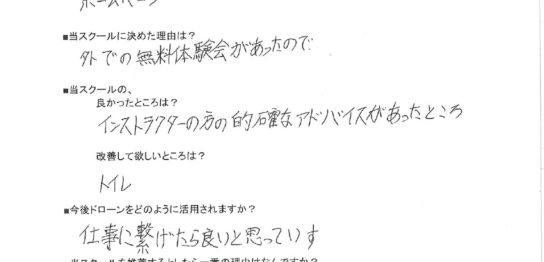 ホームページ
■当スクールに決めた理由は？
外での無料体験会があったので
■当スクールの、
良かったところは？
インストラクターの方の的確なアドバイスがあったところ
改善して欲しいところは？
トイレ
■今後ドローンをどのように活用されますか？
仕事に繋げたら良いと思っています